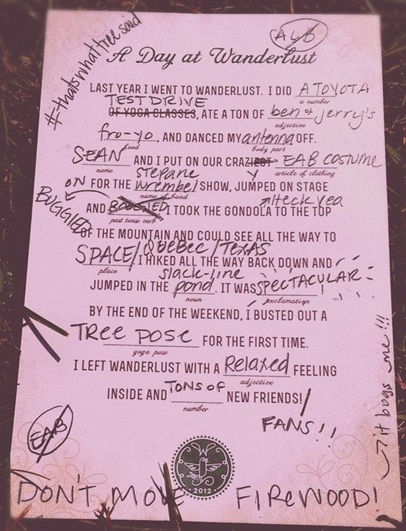 #thatswhattreesaid
ALB
A Day at Wanderlust
LAST YEAR I WENT TO WANDERLUST. I DID A TOYOTA
a number
TEST DRIVE
OF YOGA CLASSES, ATE A TON OF ben & jerry's
adjective
fro-yo, AND DANCED MY antenna OFF.
food body part
SEAN AND I PUT ON OUR CRAZY EAB COSTUME
name article of clothing
stepane
ON FOR THE wrembel SHOW, JUMPED ON STAGE
name of band
BUGGIER
Heck yea
AND BOOSTED. I TOOK THE GONDOLA TO THE TOP
past tense verb
OF THE MOUNTAIN AND COULD SEE ALL THE WAY TO
SPACE/QUEBEC/TEXAS
place
I HIKED ALL THE WAY BACK DOWN AND
slack-line
JUMPED IN THE pond. IT WAS SPECTACULAR!
noun exclamation
BY THE END OF THE WEEKEND, I BUSTED OUT A
TREE POSE FOR THE FIRST TIME.
yoga pose
I LEFT WANDERLUST WITH A Relaxed FEELING
adjective
INSIDE AND TONS OF NEW FRIENDS!/
number
FANS!!
it bugs me!!!
EAB
2012
DON'T MOVE FIREWOOD!